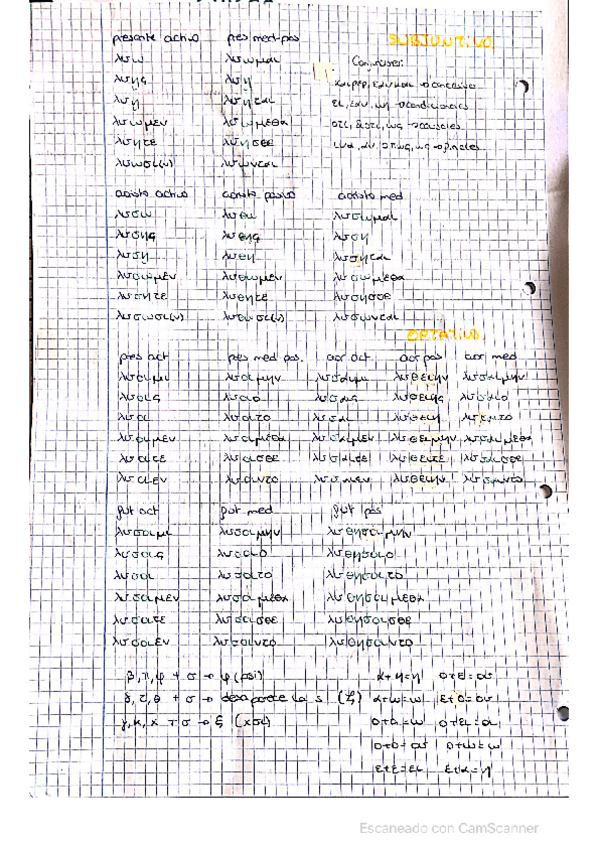 presente activo pres med-pas SUBJUNTIVO
λυω λυωμαι Conjunciones:
λυης λυη
λυη λυηται ει, εαν, ως → condicionales
λυωμεν λυωμεθα οτι, διοτι, ως → causales
λυητε λυησθε ινα, αν, οπως, ως →
λυωσι(ν) λυωνται
aoristo activo aoristo pasivo aoristo med
λυσω λυθω λυσωμαι
λυσης λυθης λυση
λυση λυθη λυσηται
λυσωμεν λυθωμεν λυσωμεθα
λυσητε λυθητε λυσησθε
λυσωσι(ν) λυθωσι(ν) λυσωνται
OPTATIVO
pres act pres med pas. aor act aor pas aor med
λυοιμι λυοιμην λυσαιμι λυθειην λυσαιμην
λυοις λυοιο λυσαις λυθειης λυσαιο
λυοι λυοιτο λυσαι λυθειη
λυοιμεν λυοιμεθα λυσαιμεν λυσαιμεθα
λυοιτε λυοισθε λυσαιτε λυθειτε λυσαισθε
λυοιεν λυοιντο λυσαιντο
fut act fut med fut pas
λυσοιμι λυσοιμην λυθησοιμην
λυσοις λυσοιο λυθησοιο
λυσοι λυσοιτο λυθησοιτο
λυσοιμεν λυσοιμεθα λυθησοιμεθα
λυσοιτε λυσοισθε λυθησοισθε
λυσοιεν λυσοιντο λυθησοιντο
β, π, φ + σ → ψ (psi) ο+ε=ου
δ, τ, θ + σ → desaparece la s (ζ) α+ω=ω ε+ο=ου
γ, κ, χ + σ → ξ (xsi) ο+α=ω ο+ει=οι
ο+ο=ου ο+ω=ω
ε+ε=ει ε+α=η
Escaneado con CamScanner